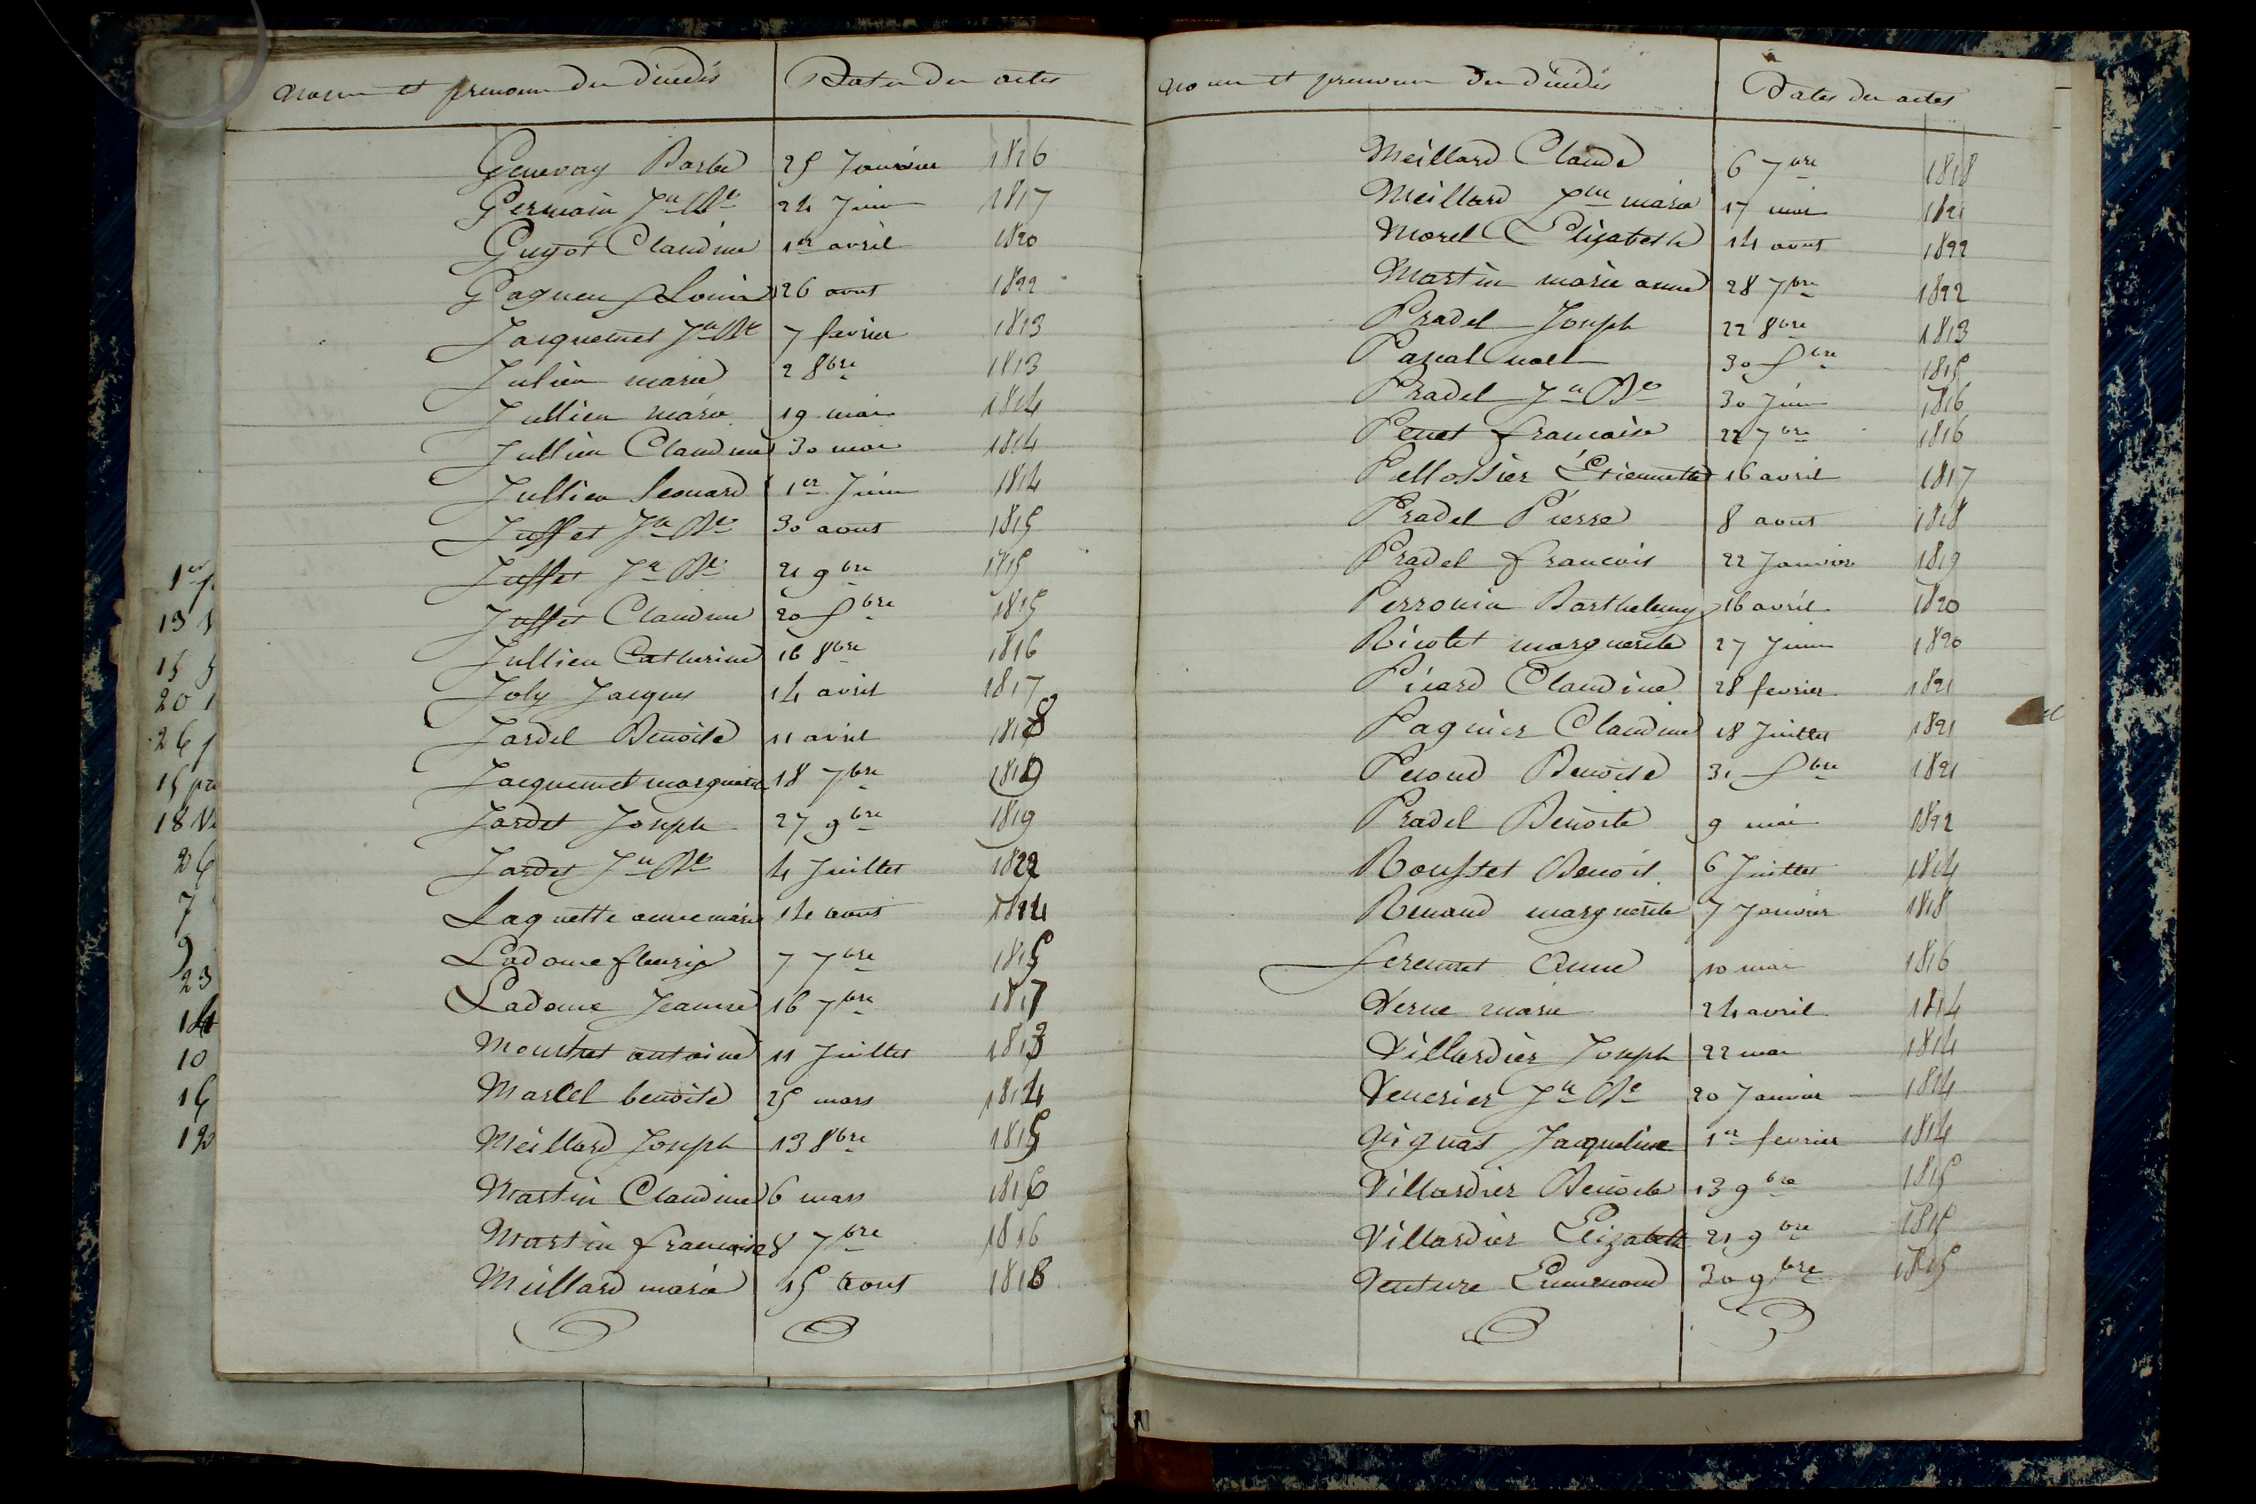 Noms et prenoms des décédés Dates des actes
Genevay Barbe 25 Janvier 1816
Germain Jn Bte 24 Juin 1817
Guyot Claudine 1er avril 1820
Gagneu Louis 26 aout 1822
Jacquemet Jn Bte 7 fevrier 1813
Julien marie 2 8bre 1813
Jullien marie 19 mai 1814
Jullien Claudine 30 mai 1814
Jullien Leonard 1er Juin 1814
Juffet Jn Bte 30 aout 1815
Juffet Jn Bte 21 9bre 1815
Juffet Claudine 20 Xbre 1815
Jullien Catherine 16 8bre 1816
Joly Jacques 14 avril 1817
Jardel Benoite 11 avril 1818
Jacquemet marguerite 18 7bre 1818
Jardet Joseph 27 9bre 1819
Jardet Jn Bte 4 Juillet 1822
Laquette anne marie 14 aout 1814
Ladome fleurie 7 7bre 1815
Ladome Jeanne 16 7bre 1817
Mouchet antoine 11 Juillet 1813
Marcel benoite 25 mars 1814
Meillard Joseph 13 8bre 1815
Martin Claudine 6 mars 1816
Martin francoise 8 7bre 1816
Meillard marie 15 aout 1818
Noms et prenoms des décédés Dates des actes
Meillard Claude 6 7bre 1818
Meillard Jne marie 17 mai 1821
Morel Elizabeth 14 aout 1822
Martin marie anne 28 7bre 1822
Pradel Joseph 22 8bre 1813
Pascal noel 30 Xbre 1815
Pradel Jn Bte 30 Juin 1816
Penet francoise 22 7bre 1816
Pellossier Etiennette 16 avril 1817
Pradel Pierre 8 aout 1818
Pradel francois 22 Janvier 1819
Perronin Barthelemy 16 avril 1820
Ricolet marguerite 27 Juin 1820
Picard Claudine 28 fevrier 1821
Pagnier Claudine 18 Juillet 1821
Peroud Benoite 31 Xbre 1821
Pradel Benoite 9 mai 1822
Rousset Benoit 6 Juillet 1814
Renaud marguerite 7 Janvier 1818
Seremet Anne 10 mai 1816
Verne marie 24 avril 1814
Villardier Joseph 22 mai 1814
Venerier Jn Bte 20 Janvier 1814
Vignat Jacqueline 1er fevrier 1814
Villardier Benoite 13 9bre 1815
Villardier Elizabeth 21 9bre 1815
Venture Ennemond 30 9bre 1815